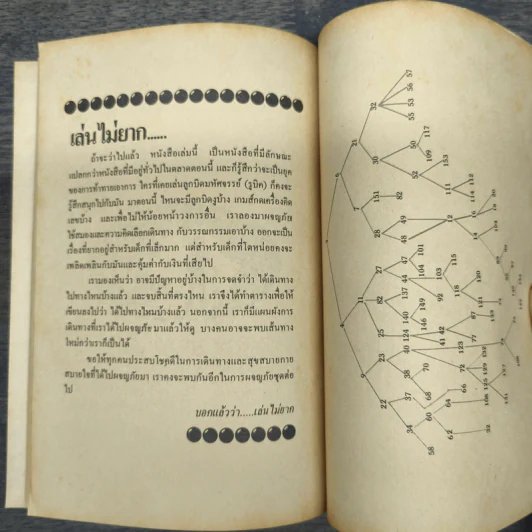 เล่นไม่ยาก......
ถ้าจะว่าไปแล้ว หนังสือเล่มนี้ เป็นหนังสือที่มีลักษณะ
แปลกกว่าหนังสือที่มีอยู่ทั่วไปในตลาดตอนนี้ และก็รู้สึกว่าจะเป็นยุค
ของการท้าทายเอาการ ใครที่เคยเล่นลูกบิดมหัศจรรย์ (รูบิค) ก็คงจะ
รู้สึกสนุกไปกับมัน มาตอนนี้ ไหนจะมีลูกบิดงูบ้าง เกมส์กดเครื่องคิด
เลขบ้าง และเพื่อไม่ให้น้อยหน้าวงการอื่น เราลองมาผจญภัย
ใช้สมองและความคิดเลือกเดินทาง กับวรรณกรรมเอาบ้าง ออกจะเป็น
เรื่องที่ยากอยู่สำหรับเด็กที่เล็กมาก แต่สำหรับเด็กที่โตหน่อยคงจะ
เพลิดเพลินกับมันและคุ้มค่ากับเงินที่เสียไป
เรามองเห็นว่า อาจมีปัญหาอยู่บ้างในการจดจำว่า ได้เดินทาง
ไปทางไหนบ้างแล้ว และจบสิ้นที่ตรงไหน เราจึงได้ทำตารางเพื่อให้
เขียนลงไปว่า ได้ไปทางไหนบ้างแล้ว นอกจากนี้ เราก็มีแผนผังการ
เดินทางที่เราได้ไปผจญภัยมาแล้วให้ดู บางคนอาจจะพบเส้นทาง
ใหม่กว่าเราก็เป็นได้
ขอให้ทุกคนประสบโชคดีในการเดินทางและสุขสบายกาย
สบายใจที่ได้ไปผจญภัยมา เราคงจะพบกันอีกในการผจญภัยชุดต่อ
ไป
บอกแล้วว่า.....เล่นไม่ยาก
57
56
53
55
32
21
30
50
117
109
52
153
111
112
114
6
7
151
82
28
49
48
12
16
14
11
27
47
101
44
104
103
115
82
137
92
118
120
121
149
25
140
146
124
41
42
87
9
23
40
123
77
132
38
70
72
129
22
37
68
66
60
64
62
34
58